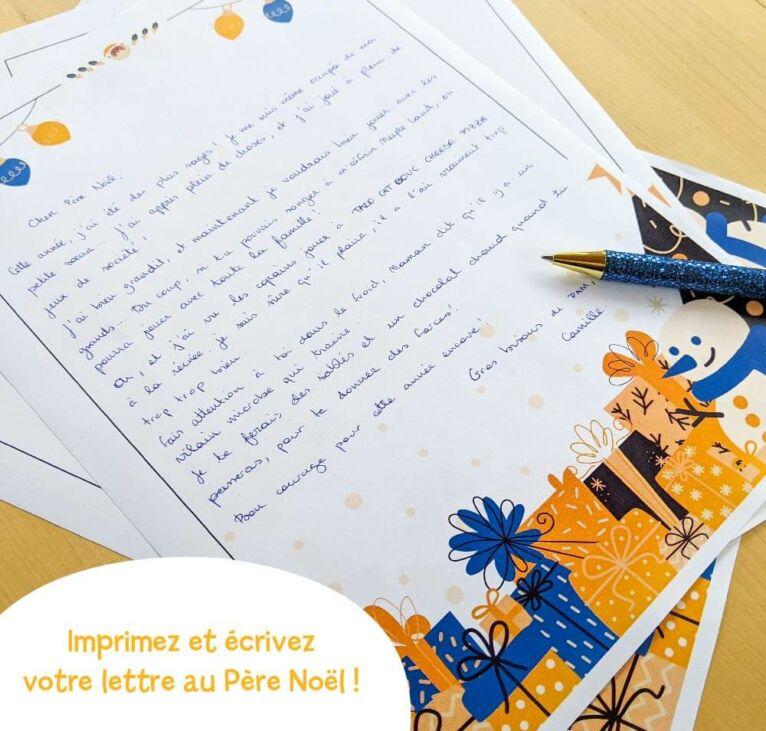 Cher Père Noël,
Cette année, j'ai été des plus sages ! Je me suis même occupée de ma
petite soeur... J'ai appris plein de choses, et j'ai joué à plein de
jeux de société !
J'ai bien grandit, et maintenant je voudrais bien jouer avec les
grands... Du coup, si tu pouvais songer à m'offrir Meeple Land, on
pourra jouer avec toute la famille !
Oh, et j'ai vu les copains jouer à TACO CAT BOUC CHEESE PIZZA
à la récrée. Je suis sûre qu'il plaira, il a l'air vraiment trop
trop trop bien.
Fais attention à toi dans le froid, Maman dit qu'il y a un
vilain microbe qui traine.
Je te ferais des sablés et un chocolat chaud quand tu
passeras, pour te donner des forces !
Bon courage pour cette année encore !
Gros bisous de PAM,
Camille
Imprimez et écrivez
votre lettre au Père Noël !